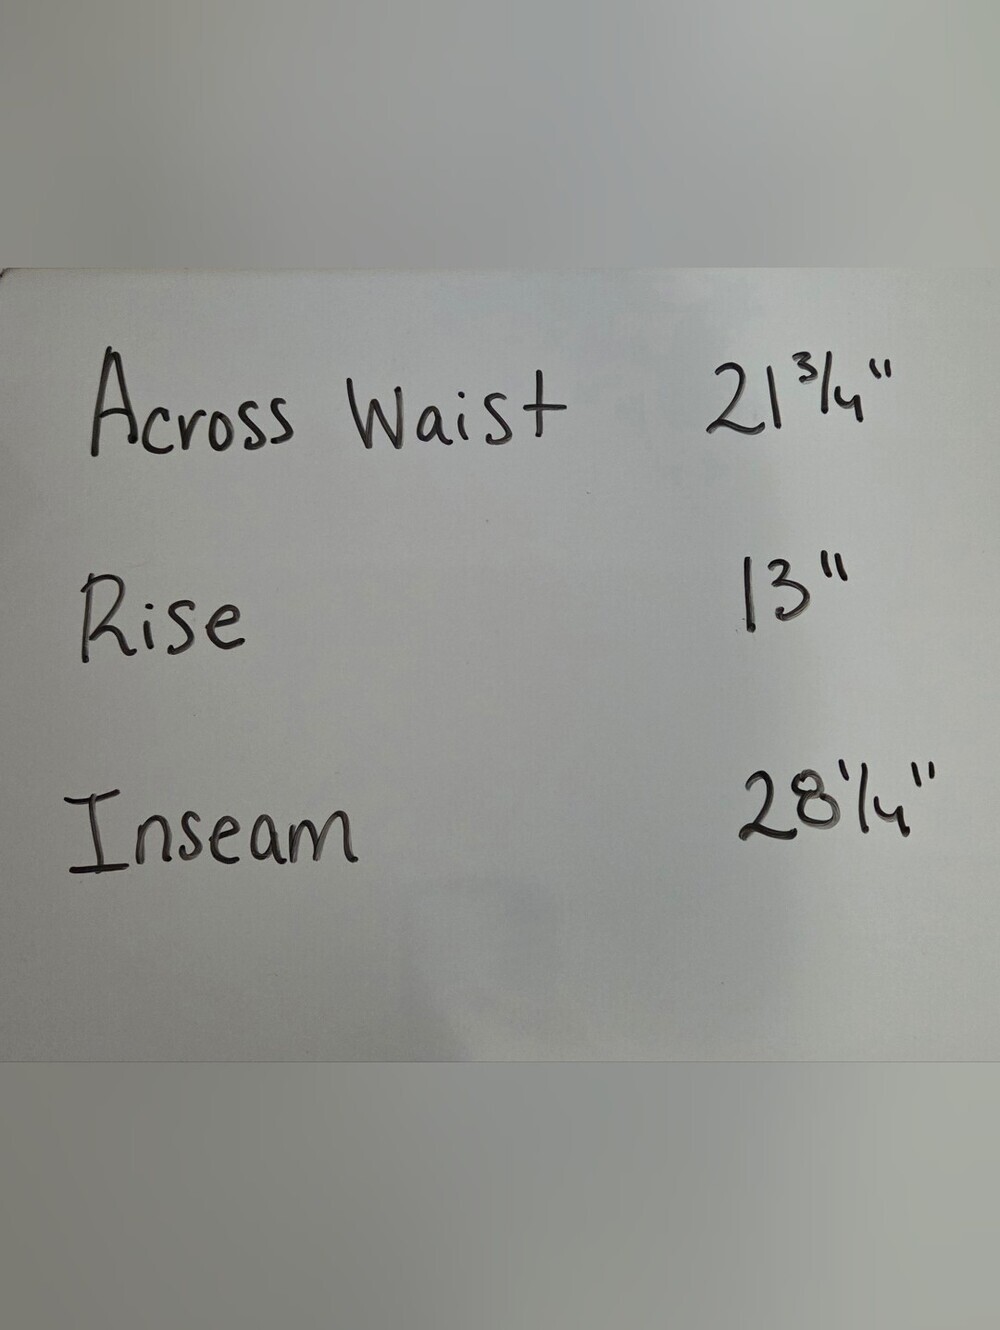 Across Waist 21 3/4"
Rise 13"
Inseam 28 1/4"